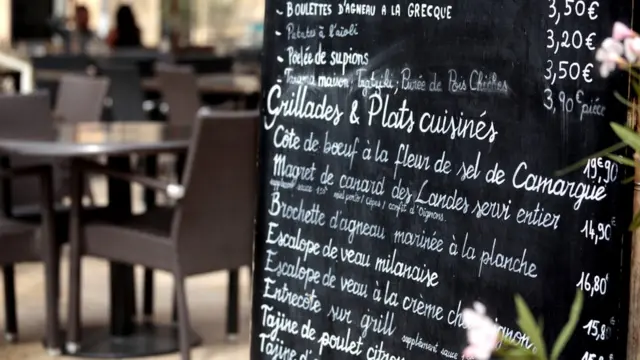 - BOULETTES D'AGNEAU A LA GRECQUE 3,50€
- Patates à l'aïoli 3,20€
- Poêlée de supions 3,50€
- Tarama maison, Tzatziki, Purée de Pois Chiches 3,90€ pièce
Grillades & Plats cuisinés
Côte de boeuf à la fleur de sel de Camargue 19,90€
Magret de canard des Landes servi entier 14,90
supplément sauce
Brochette d'agneau marinée à la planche 16,80
Escalope de veau milanaise
Escalope de veau à la crème 15,8
Entrecôte sur grill supplément sauce
Tajine de poulet citron
Tajine